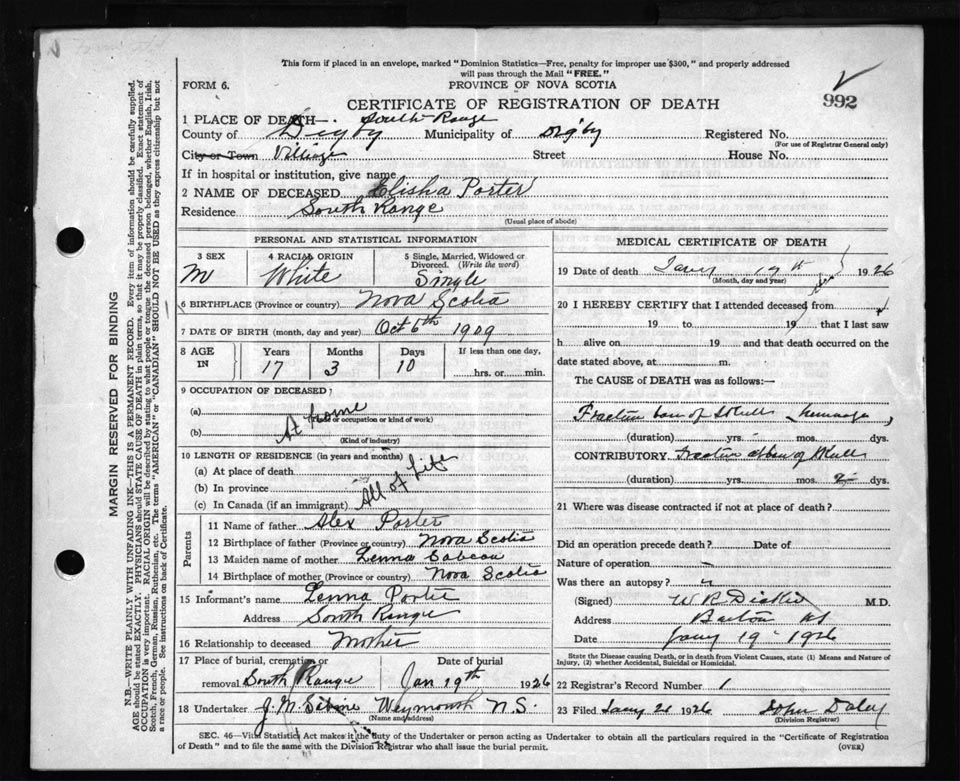 This form if placed in an envelope, marked "Dominion Statistics—Free, penalty for improper use $300," and properly addressed
will pass through the Mail "FREE."
FORM 6.
PROVINCE OF NOVA SCOTIA
992
CERTIFICATE OF REGISTRATION OF DEATH
1 PLACE OF DEATH—. South Range
County of Digby Municipality of Digby Registered No.
(For use of Registrar General only)
City or Town Village Street House No.
If in hospital or institution, give name
2 NAME OF DECEASED Elisha Porter
Residence South Range
(Usual place of abode)
PERSONAL AND STATISTICAL INFORMATION
3 SEX 4 RACIAL ORIGIN 5 Single, Married, Widowed or
Divorced. (Write the word)
M White Single
6 BIRTHPLACE (Province or country) Nova Scotia
7 DATE OF BIRTH (month, day and year) Oct 6th 1909
8 AGE IN Years Months Days If less than one day,
17 3 10 hrs. or min.
9 OCCUPATION OF DECEASED
(a) At home
(Trade or occupation or kind of work)
(b)
(Kind of industry)
10 LENGTH OF RESIDENCE (in years and months)
(a) At place of death
(b) In province All of Life
(c) In Canada (if an immigrant)
Parents
11 Name of father Alex Porter
12 Birthplace of father (Province or country) Nova Scotia
13 Maiden name of mother Lenna
14 Birthplace of mother (Province or country) Nova Scotia
15 Informant's name Lenna Porter
Address South Range
16 Relationship to deceased Mother
17 Place of burial, cremation or Date of burial
removal South Range Jan 19th 1926
18 Undertaker J. M. Weymouth N.S.
(Name and address)
MEDICAL CERTIFICATE OF DEATH
19 Date of death Jany 19th 1926
(Month, day and year)
20 I HEREBY CERTIFY that I attended deceased from
19 to 19 that I last saw
h alive on 19 and that death occurred on the
date stated above, at m.
The CAUSE of DEATH was as follows:—
Fracture of Skull
(duration) yrs. mos. dys.
CONTRIBUTORY Fracture of Skull
(duration) yrs. mos. dys.
21 Where was disease contracted if not at place of death?
Did an operation precede death? Date of
Nature of operation
Was there an autopsy?
(Signed) W R Dickie M.D.
Address Barton NS
Date Jany 19 - 1926
State the Disease causing Death, or in death from Violent Causes, state (1) Means and Nature of
Injury, (2) whether Accidental, Suicidal or Homicidal.
22 Registrar's Record Number 1
23 Filed Jany 1926 John Daley
(Division Registrar)
SEC. 46—Vital Statistics Act makes it the duty of the Undertaker or person acting as Undertaker to obtain all the particulars required in the "Certificate of Registration
of Death" and to file the same with the Division Registrar who shall issue the burial permit. (OVER)
MARGIN RESERVED FOR BINDING
N.B.—WRITE PLAINLY WITH UNFADING INK—THIS IS A PERMANENT RECORD. Every item of information should be carefully supplied.
AGE should be stated EXACTLY. PHYSICIANS should STATE CAUSE OF DEATH in plain terms, so that it may be properly classified. Exact statement of
OCCUPATION is very important. RACIAL ORIGIN will be described by stating to what people or tongue the deceased person belonged, whether English, Irish,
Scotch, French, German, Russian, Ruthenian, etc. The terms "AMERICAN" or "CANADIAN" SHOULD NOT BE USED as they express citizenship but not
a race or people. See instructions on back of Certificate.